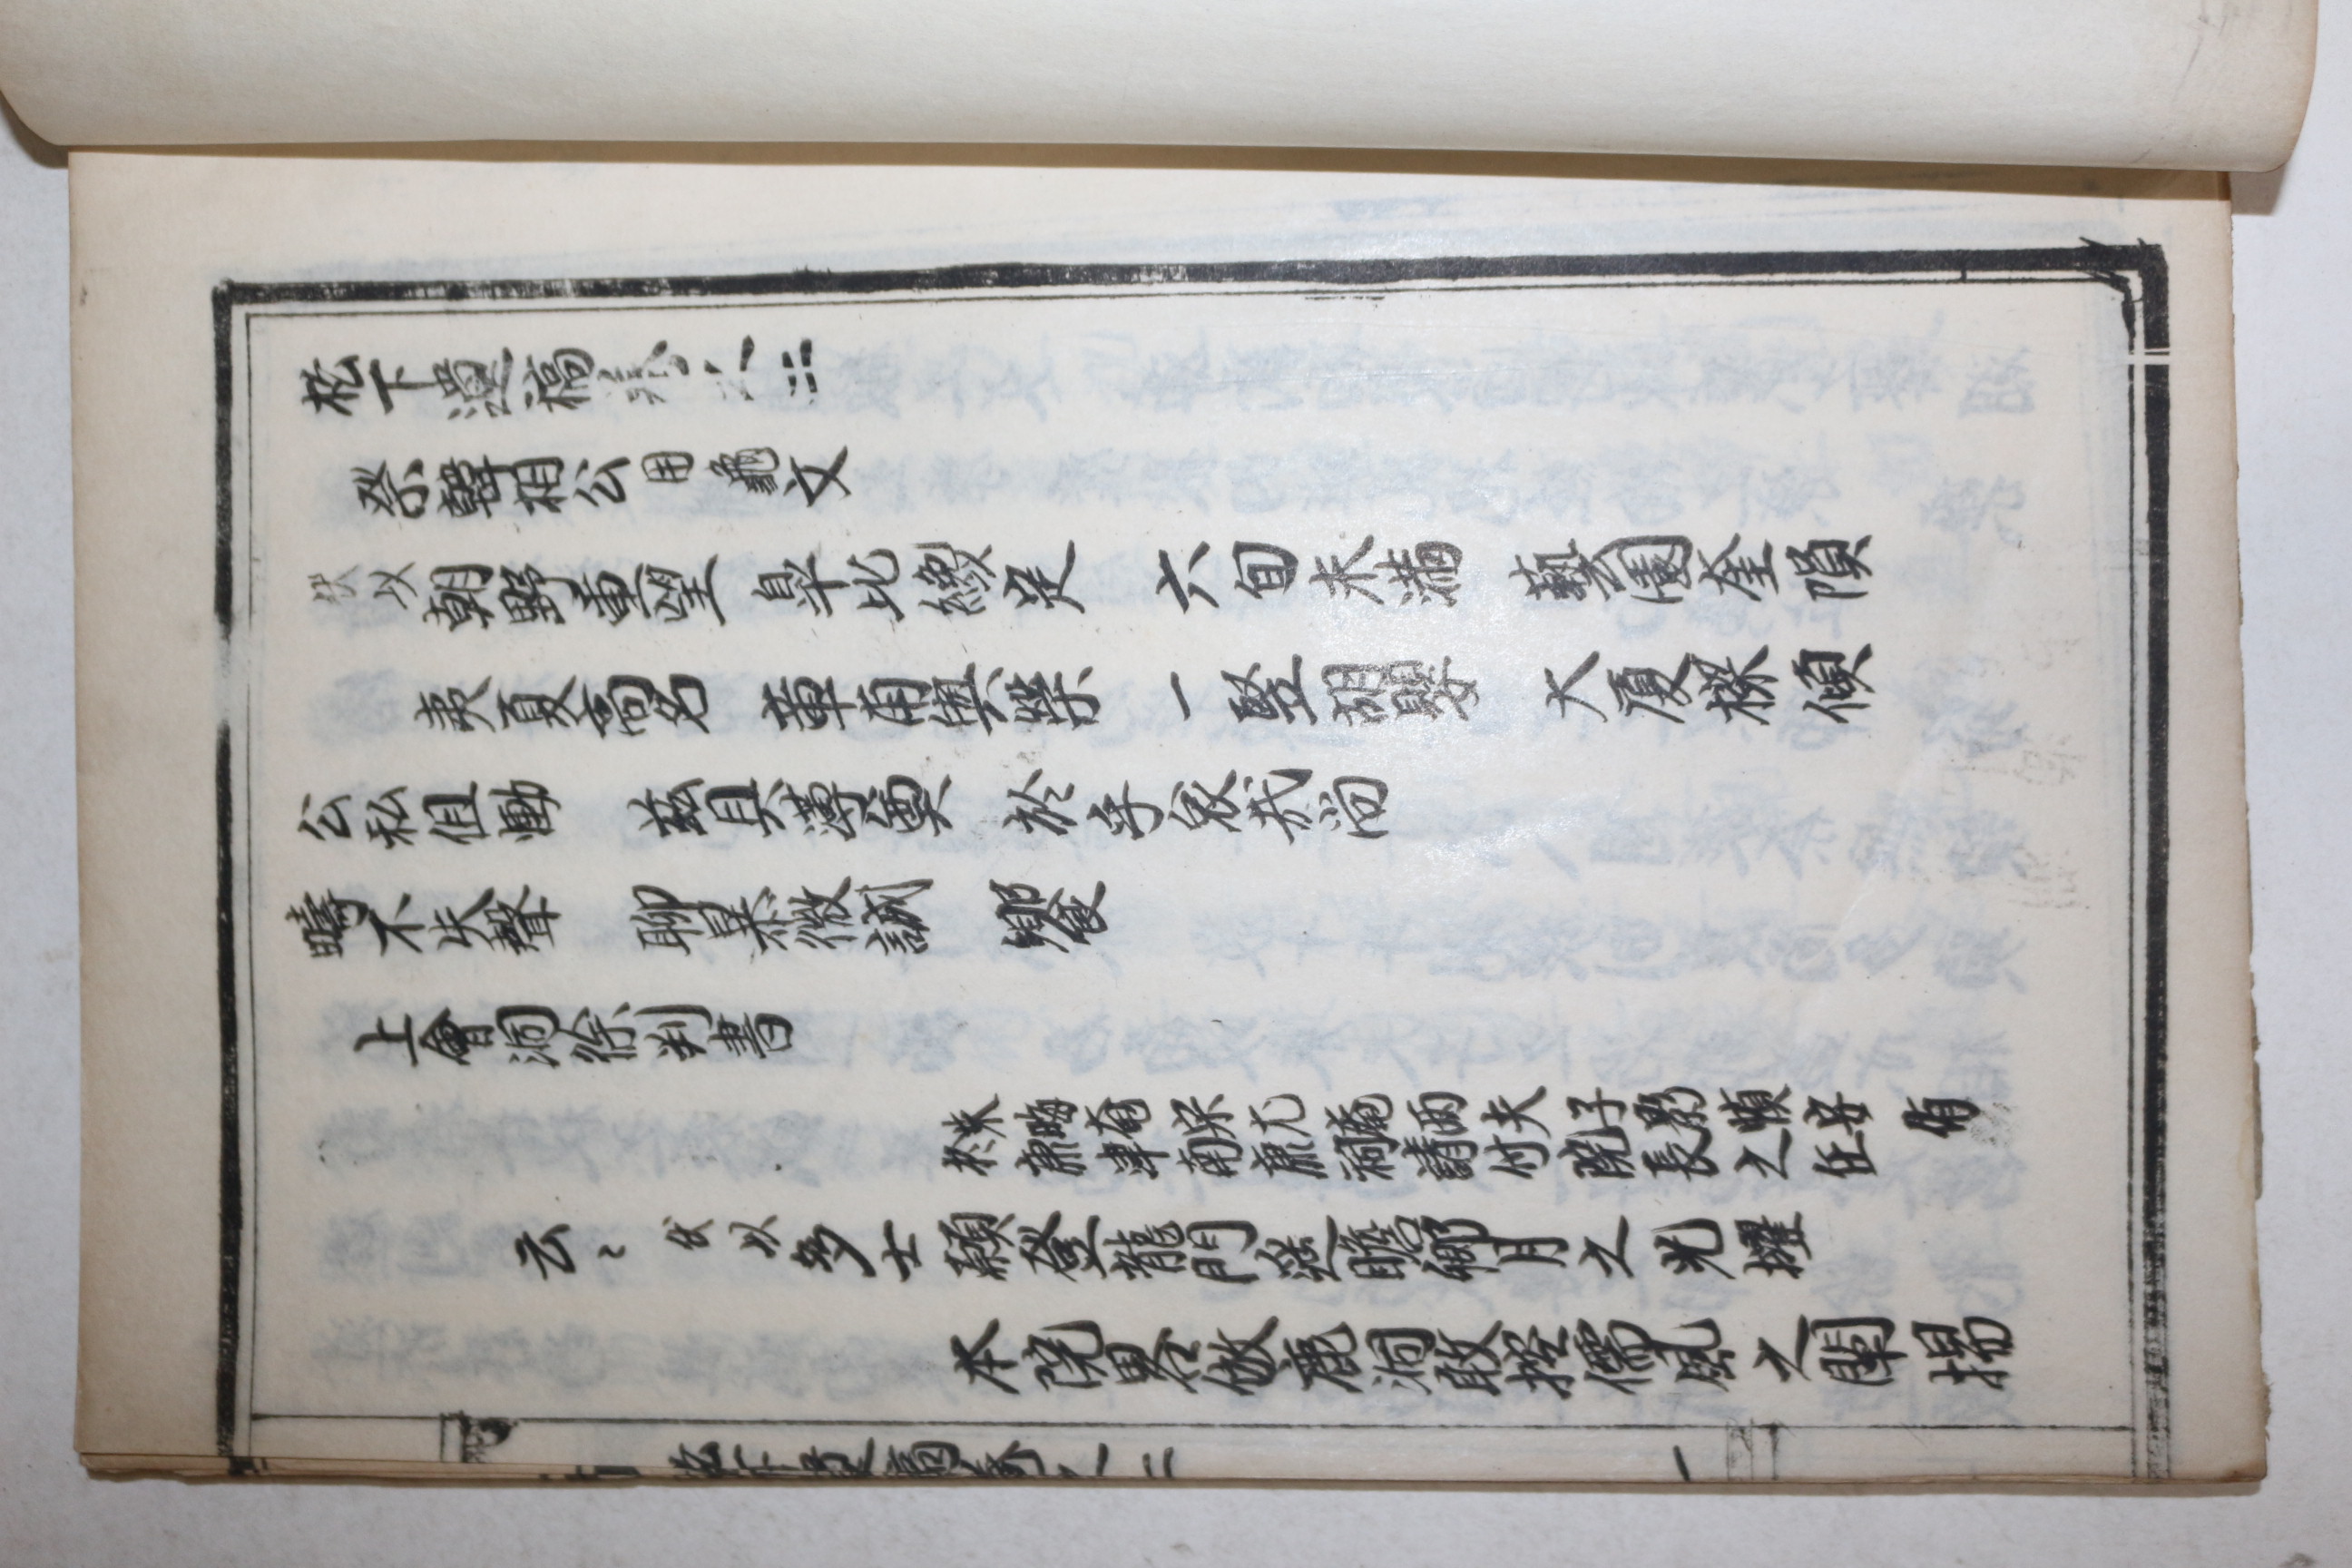 松下遺稿卷之二
祭韓相公用龜文
伏以朝野重望 皐比纔定 六旬未滿 藝園奎隕
夷夏高名 章甫與榮 一竪胡嬰 大廈樑傾
公私俱慟 玆具薄奠 於乎哀哉尚
疇不失聲 聊暴微誠 饗
上會洞徐判書
朱晦菴宋尤庵兩夫子影幀安侑
於肅津南康祠請付院長之任
云〻伏以多士願登龍門遙瞻卿月之光耀
本院畧倣鹿洞敢控儒風之闡揚
松下遺稿卷之二 一